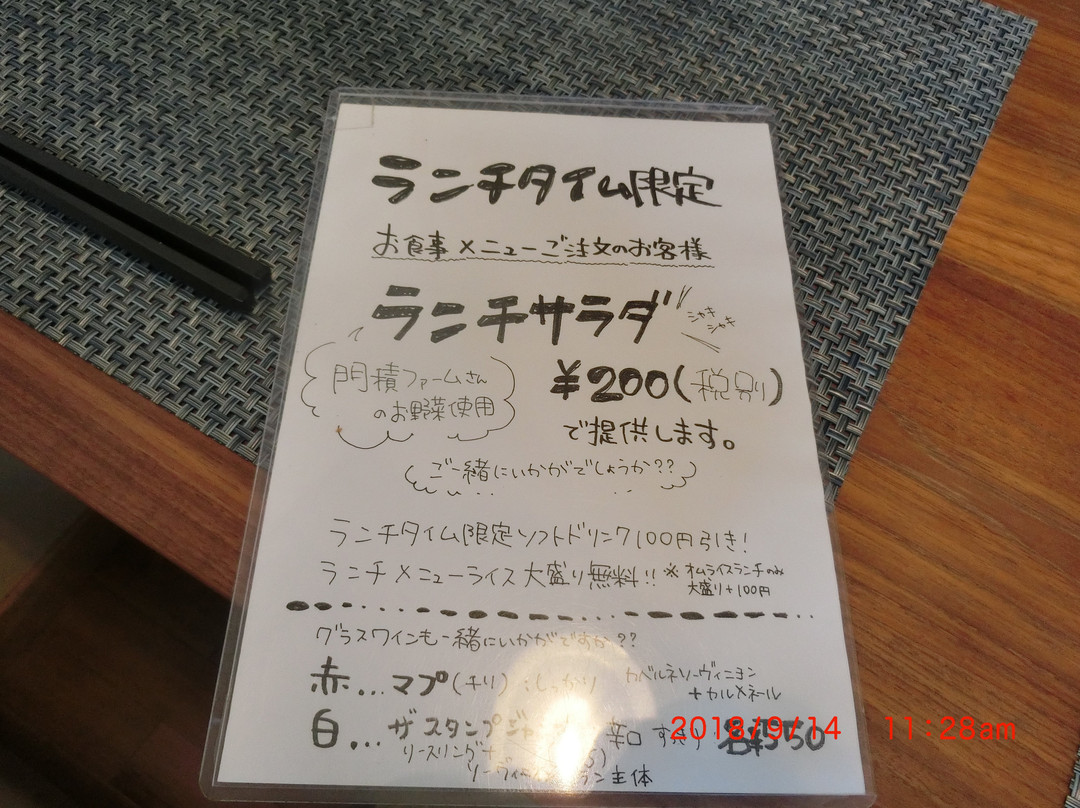 ランチタイム限定
お食事メニューご注文のお客様
ランチサラダ
シャキ
シャキ
門積ファームさん
のお野菜使用
¥200(税別)
で提供します。
ご一緒にいかがでしょうか??
ランチタイム限定ソフトドリンク100円引き!
ランチメニューライス大盛り無料!! ※オムライスランチのみ
大盛り+100円
グラスワインも一緒にいかがですか??
赤...マプ(チリ):しっかり カベルネソーヴィニヨン
+カルメネール
白...ザスタンプジャ 辛口 各¥550
リースリング+
ン主体
2018/9/14 11:28am